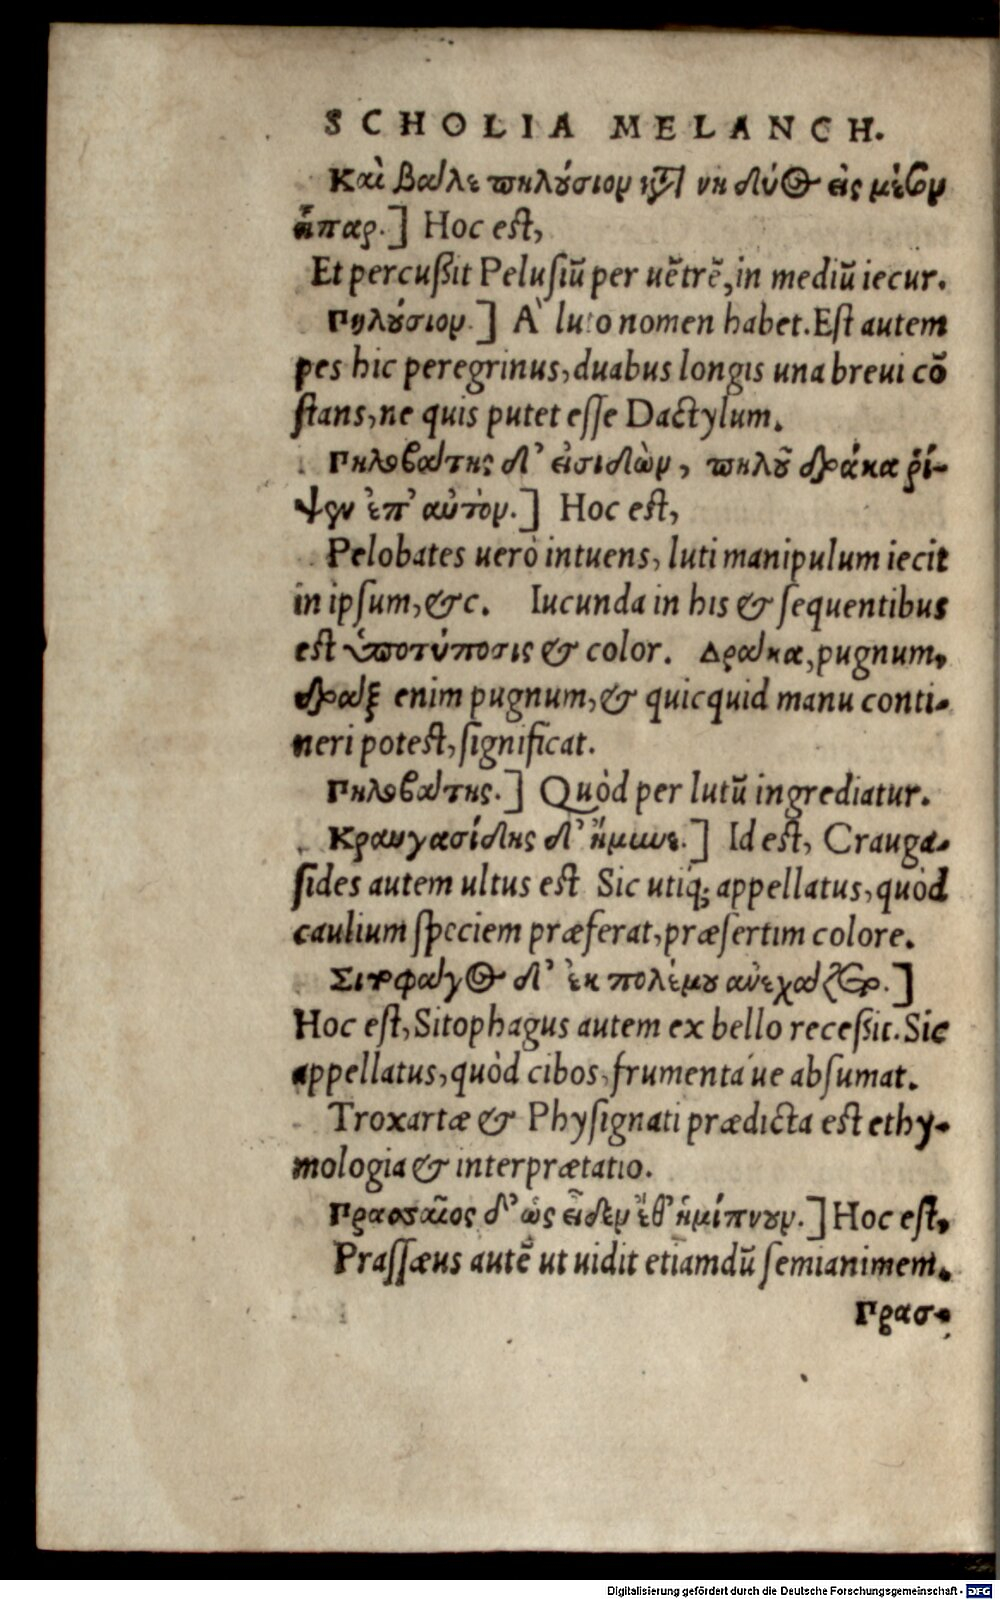 SCHOLIA MELANCH.
Καὶ βάλε πηλούσιον κατὰ νηδύος ἐις μέσον
ἧπαρ.] Hoc est,
Et percußit Pelusiũ per uẽtrẽ, in mediũ iecur.
Πηλούσιον.] A' luto nomen habet. Est autem
pes hic peregrinus, duabus longis una breui cõ
stans, ne quis putet esse Dactylum.
Πηλοβάτης δ' ἐισιδὼν, πηλοῦ δράκα ῥί-
ψεν ἐπ' αὐτόν.] Hoc est,
Pelobates uerò intuens, luti manipulum iecit
in ipsum, &c. Iucunda in his & sequentibus
est ὑποτύποσις & color. Δράκα, pugnum,
δράξ enim pugnum, & quicquid manu conti-
neri potest, significat.
Πηλοβάτης.] Quòd per lutũ ingrediatur.
Κραυγασίδης δ' ἤμυνε.] Id est, Crauga-
sides autem ultus est Sic utiq; appellatus, quòd
caulium speciem præferat, præsertim colore.
Σιτοφάγος δ' ἐκ πολέμου ἀνεχάζετο.]
Hoc est, Sitophagus autem ex bello receßit. Sic
appellatus, quòd cibos, frumenta´ue absumat.
Troxartæ & Physignati prædicta est ethy-
mologia & interprætatio.
Πρασσαῖος δ' ὡς εἶδεν ἔθ' ἡμίπνουν.] Hoc est,
Prassæus autẽ ut uidit etiamdũ semianimem.
Πρασ-
Digitalisierung gefördert durch die Deutsche Forschungsgemeinschaft - DFG